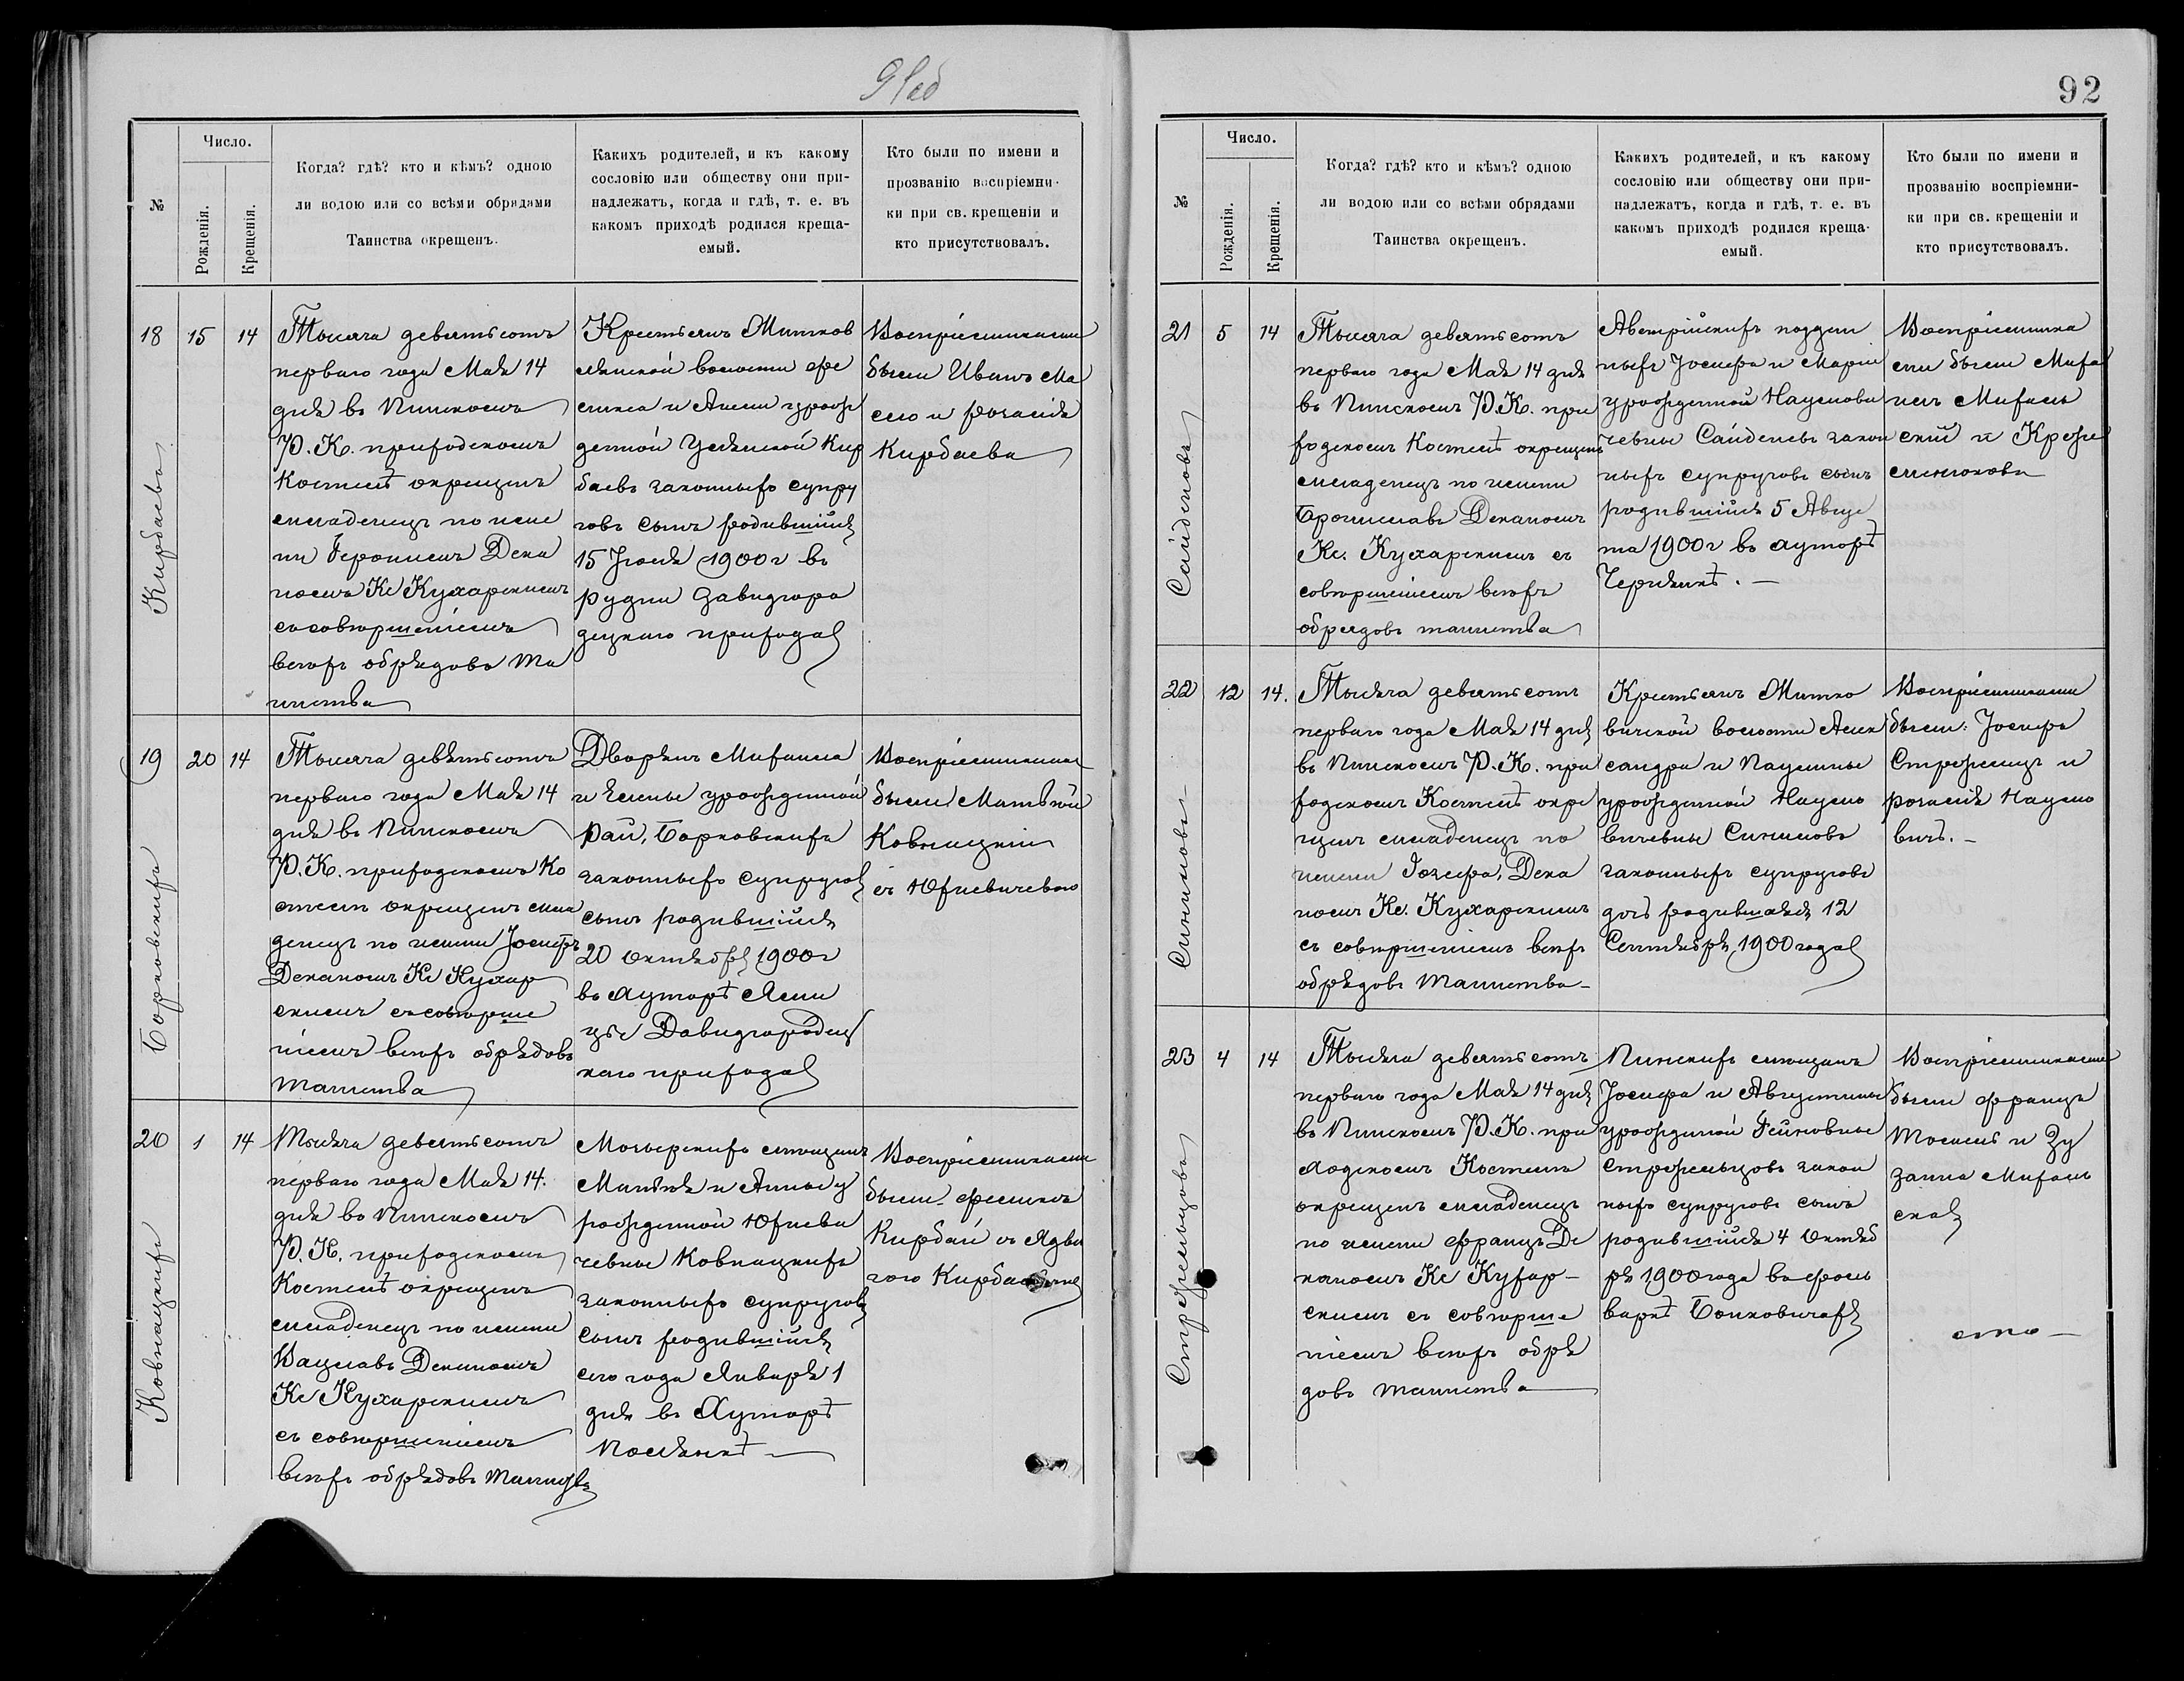 92
№
Число.
Рожденія.
Крещенія.
Когда? гдѣ? кто и кѣмъ? одною
ли водою или со всѣми обрядами
Таинства окрещенъ.
Какихъ родителей, и къ какому
сословію или обществу они при-
надлежатъ, когда и гдѣ, т. е. въ
какомъ приходѣ родился креща-
емый.
Кто были по имени и
прозванію воспріемни-
ки при св. крещеніи и
кто присутствовалъ.
18
15
14
Кирбаева
Тысяча девятьсотъ
перваго года Мая 14
дня въ Пинскомъ
Р. К. приходскомъ
Костелѣ окрещенъ
младенецъ по име
ни Іеронимъ Дека
номъ Кс Кухарскимъ
со совершеніемъ
всѣхъ обрядовъ та
инства
Крестьянъ
волости
и
деной Кир
баевъ законныхъ супру
говъ сынъ родившійся
15 Іюля 1900 г въ
Рудни Давидгоро
децкаго прихода
Воспріемниками
были Иванъ
и Розалія
Кирбаева
19
20
14
Борковскихъ
Тысяча девятьсотъ
перваго года Мая 14
дня въ Пинскомъ
Р. К. приходскомъ Ко
стелѣ окрещенъ мла
денецъ по имени Іосифъ
Деканомъ Кс Кухар
скимъ съ соверше
ніемъ всѣхъ обрядовъ
таинства
Дворянъ Михаила
и Елены урожденной
Рай, Борковскихъ
законныхъ супруговъ
сынъ родившійся
20 Октября 1900 г
въ хуторѣ Ясин
цы Давидгородец
каго прихода
Воспріемниками
были Матвѣй
Ковнацкій
съ Юхневичевою
20
1
14
Ковнацкихъ
Тысяча девятьсотъ
перваго года Мая 14.
дня въ Пинскомъ
Р. К. приходскомъ
Костелѣ окрещенъ
младенецъ по имени
Вацлавъ Деканомъ
Кс Кухарскимъ
съ совершеніемъ
всѣхъ обрядовъ таинства
Мозырскихъ мѣщанъ
Матвѣя и Анны у
рожденной Юхневи
чевны Ковнацкихъ
законныхъ супруговъ
сынъ родившійся
сего года Января 1
дня въ Хуторѣ
Воспріемниками
были Феликсъ
Кирбай съ Ядви
гою
№
Число.
Рожденія.
Крещенія.
Когда? гдѣ? кто и кѣмъ? одною
ли водою или со всѣми обрядами
Таинства окрещенъ.
Какихъ родителей, и къ какому
сословію или обществу они при-
надлежатъ, когда и гдѣ, т. е. въ
какомъ приходѣ родился креща-
емый.
Кто были по имени и
прозванію воспріемни-
ки при св. крещеніи и
кто присутствовалъ.
21
5
14
Сайденовъ
Тысяча девятьсотъ
перваго года Мая 14 дня
въ Пинскомъ Р. К. при
ходскомъ Костелѣ окрещенъ
младенецъ по имени
Брониславъ Деканомъ
Кс. Кухарскимъ съ
совершеніемъ всѣхъ
обрядовъ таинства
Австрійскихъ поддан
ныхъ Іосифа и Маріи
урожденной Наумови
чевны Сайденовъ закон
ныхъ супруговъ сынъ
родившійся 5 Авгус
та 1900 г въ хуторѣ
Воспріемника
ми были Миха
илъ Михаль
скій и
22
12
14.
Тысяча девятьсотъ
перваго года Мая 14 дня
въ Пинскомъ Р. К. при
ходскомъ Костелѣ окре
щенъ младенецъ по
имени Іозефа, Дека
номъ Кс. Кухарскимъ
съ совершеніемъ всѣхъ
обрядовъ таинства
Крестьянъ
волости Алек
сандра и Паулины
урожденной Наумо
вичевны
законныхъ супруговъ
дочь родившаяся 12
Сентября 1900 года
Воспріемниками
были: Іосифъ
Стрежелецъ и
Розалія Наумо
вичъ.
23
4
14
Стрежельцовъ
Тысяча девятьсотъ
перваго года Мая 14 дня
въ Пинскомъ Р. К. при
ходскомъ Костелѣ
окрещенъ младенецъ
по имени Францъ Де
каномъ Кс Кухар-
скимъ съ соверше
ніемъ всѣхъ обря
довъ таинства
Пинскихъ мѣщанъ
Іосифа и Августины
урожденной
Стрежельцовъ закон
ныхъ супруговъ сынъ
родившійся 4 Октяб
ря 1900 года въ фоль
варкѣ Боиковичахъ
Воспріемниками
были Францъ
и Зу
занна Михаль
ская